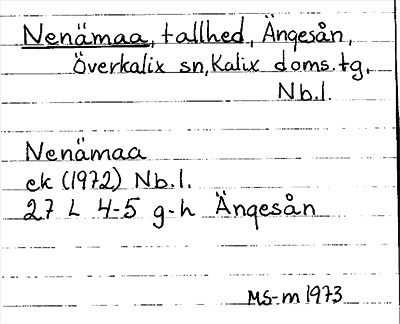 Nenämaa, tallhed, Ängesån,
Överkalix sn, Kalix doms.tg,
Nb.l.
Nenämaa
ek (1972) Nb.l.
27 L 4-5 g-h Ängesån
MS-m 1973